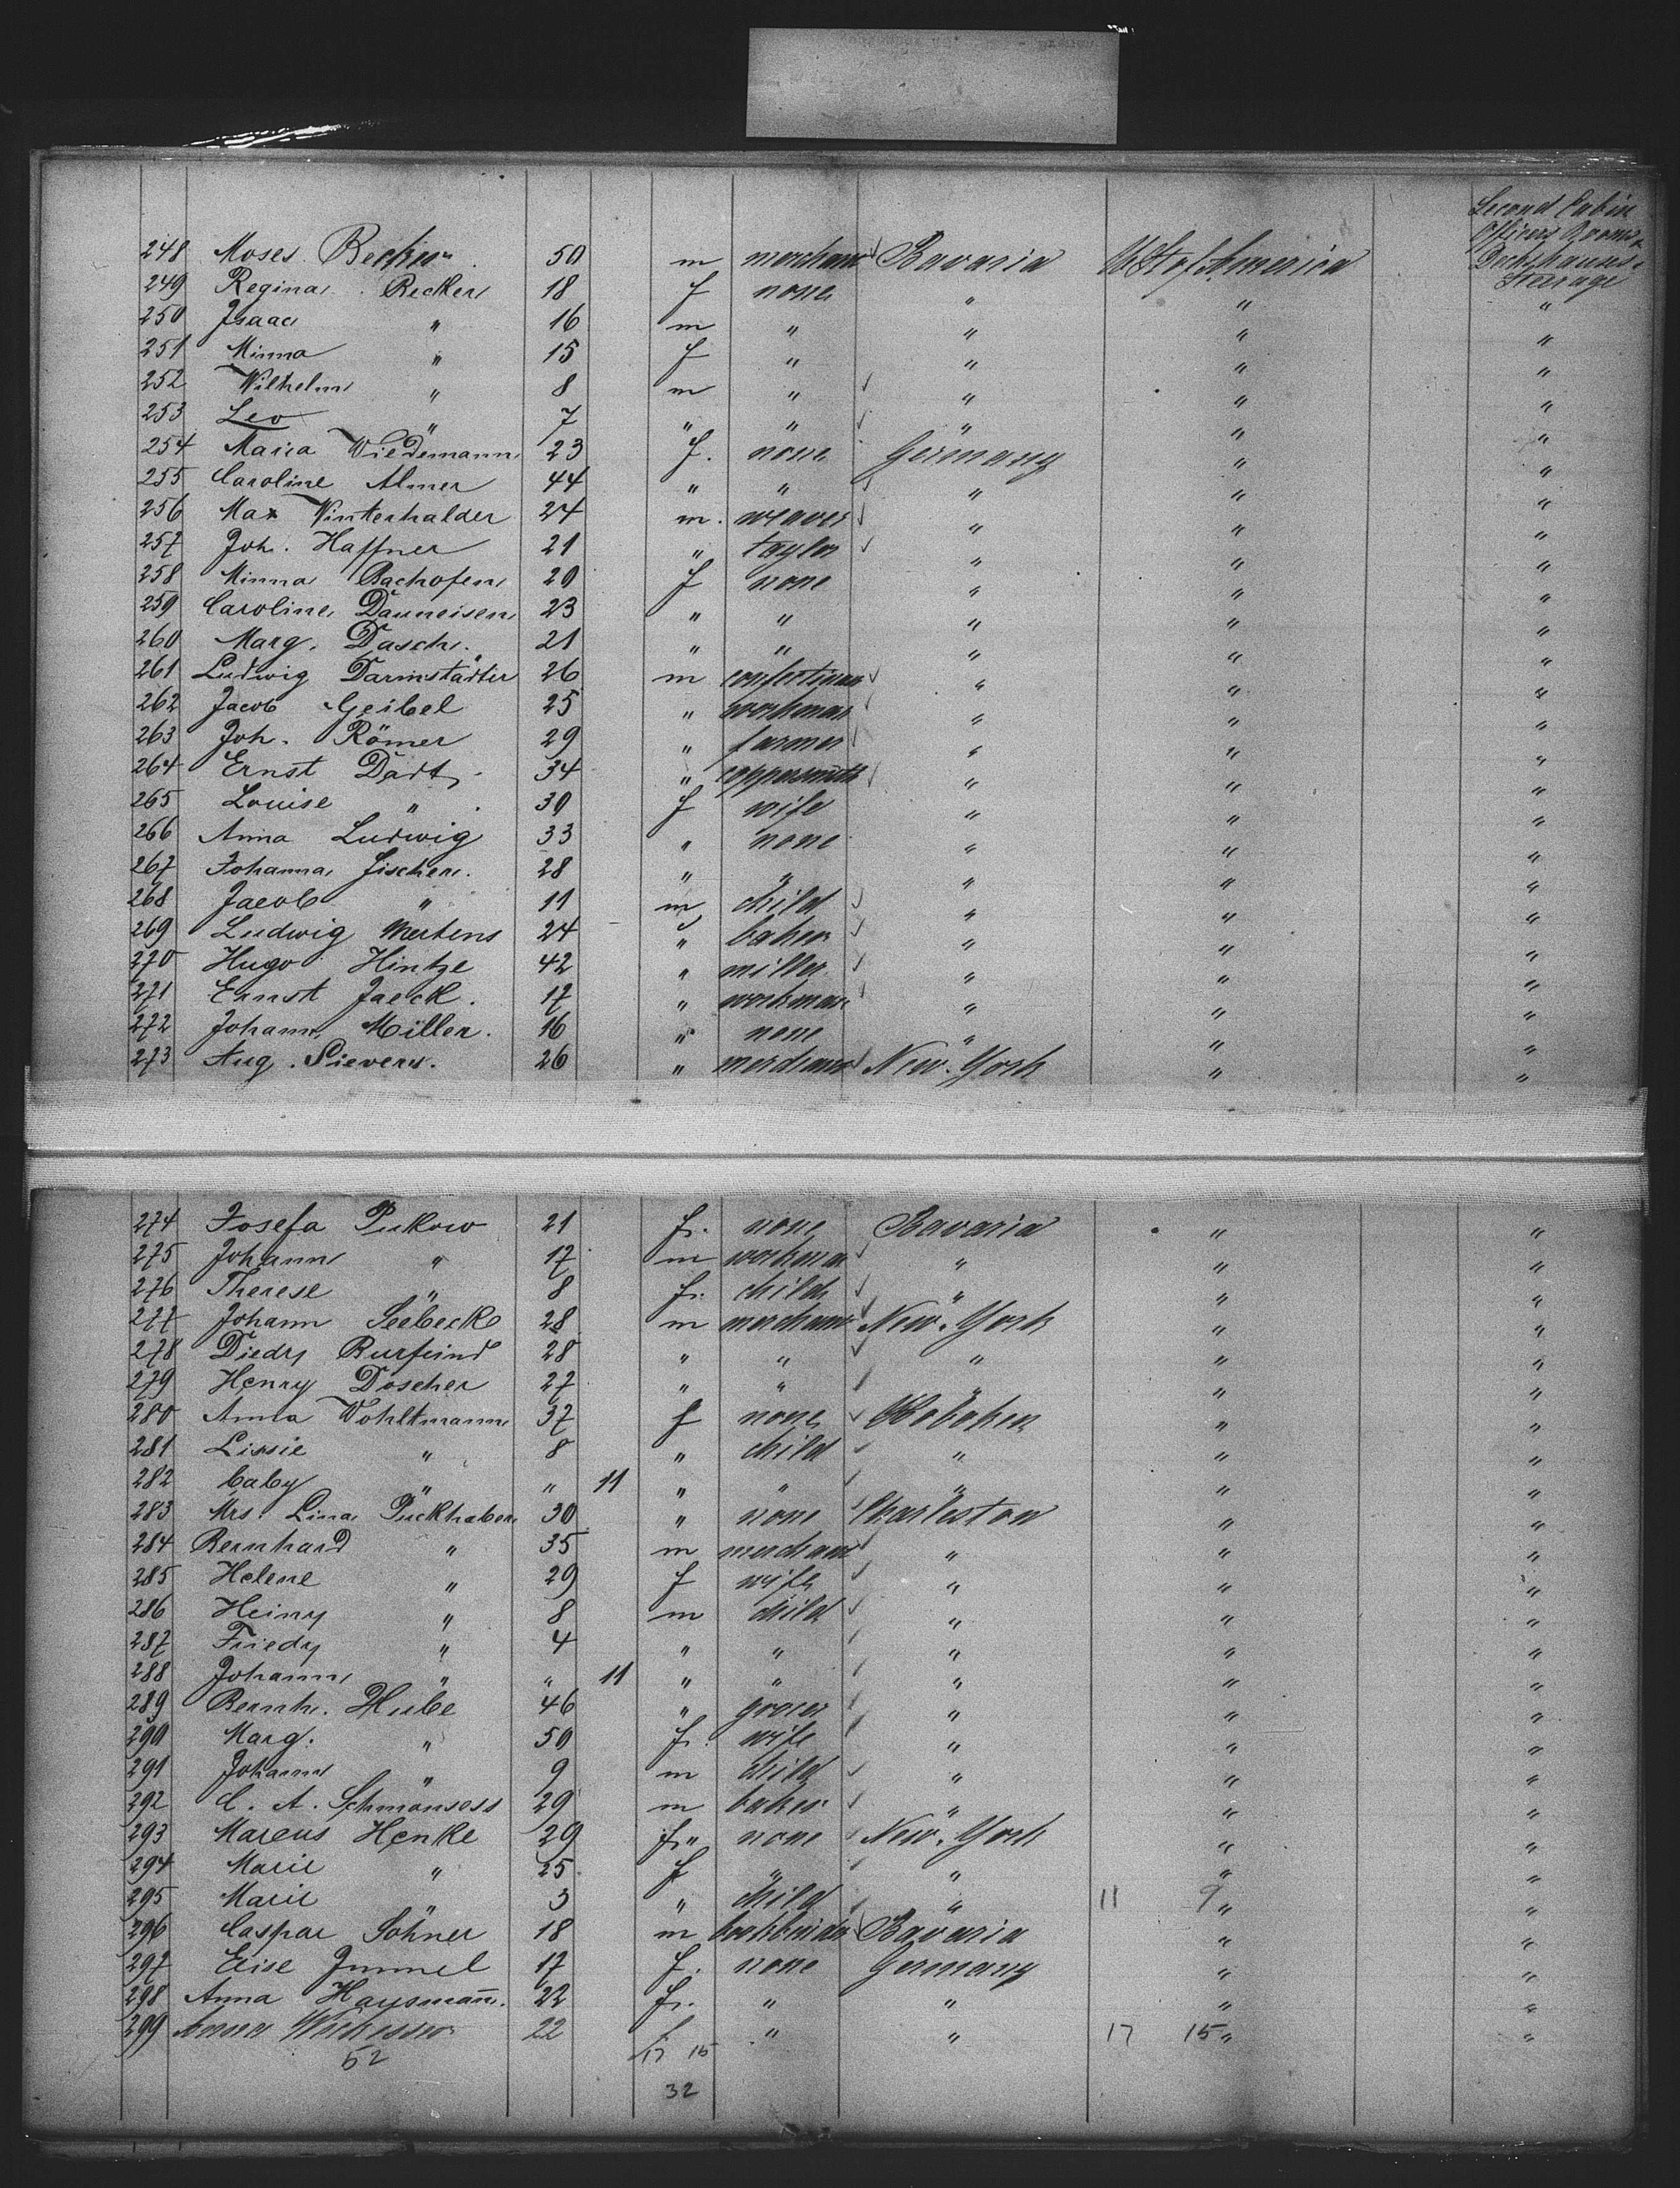 Second Cabin
Officers Rooms &
Deckshouses
248 Moses Becker 50 m merchant Bavaria U St of America Steerage
249 Regina Becker 18 f none " " "
250 Isaac " 16 m " " " "
251 Minna " 15 f " " " "
252 Wilhelm " 8 m " " " "
253 Leo " 7 " " " " "
254 Maria Wiedemann 23 f. none Germany " "
255 Caroline Almer 44 " " " " "
256 Max Winterhalder 24 m. weaver " " "
257 Joh. Haffner 21 " taylor " " "
258 Minna Bachofen 20 f none " " "
259 Caroline Danneisen 23 " " " " "
260 Marg. Dasch. 21 " " " " "
261 Ludwig Darmstädter 26 m " " "
262 Jacob Geibel 25 " workman " " "
263 Joh. Römer 29 " farmer " " "
264 Ernst Dart 34 " coppersmith " " "
265 Louise " 30 f wife " " "
266 Anna Ludwig 33 " none " " "
267 Johanna Fischer. 28 " " " " "
268 Jacob " 11 m child " " "
269 Ludwig Mertens 24 " baker " " "
270 Hugo Hintze 42 " miller " " "
271 Ernst Jaeck. 17 " workman " " "
272 Johann Müller. 16 " none " " "
273 Aug. Sievers. 26 " merchant New-York " "
274 Josefa Pukow 21 f. none Bavaria " "
275 Johann " 17 m workman " " "
276 Therese " 8 f. child " " "
277 Johann Seebeck 28 m merchant New-York " "
278 Diedr Burfeind 28 " " " " "
279 Henry Doscher 27 " " " " "
280 Anna Wohltmann 37 f none Hoboken " "
281 Lissie " 8 " child " " "
282 baby " " 11 " " " " "
283 Mrs Lina Puckhaber 30 " none Charleston " "
284 Bernhard " 35 m merchant " " "
285 Helene " 29 f wife " " "
286 Heiny " 8 m child " " "
287 Friedr " 4 " " " " "
288 Johann " " 11 " " " " "
289 Bernh. Hube 46 " grocer " " "
290 Marg. " 50 f. wife " " "
291 Johann " 9 m child " " "
292 C. A. Schmonsess 29 m baker " " "
293 Marcus Henke 29 " none New-York " "
294 Marie " 25 f " " " "
295 Marie " 3 " child " 11 9 " "
296 Caspar Söhner 18 m bookbinder Bavaria " "
297 Elise Jmmel 17 f. none Germany " "
298 Anna Haysmann. 22 f. " " " "
299 Anna 22 f " " 17 15 " "
52 17 15
32